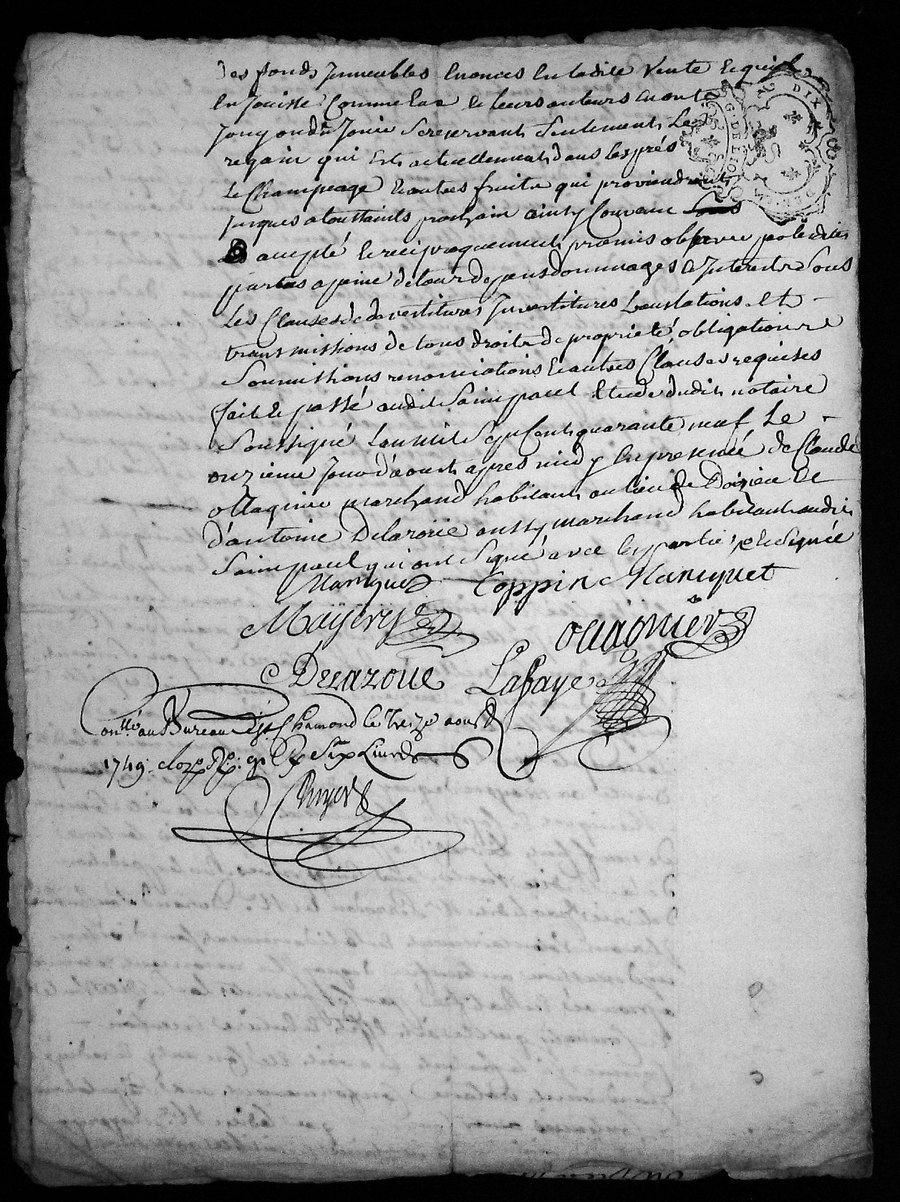 des fonds Immeubles Enoncés En ladite Vente Et quil
En Jouisse Comme Eux & leurs auteurs En ont
Jouy ou dû Jouir Se reservant Seulement Le
regain qui Est actuellement dans les prés
Le Champeage & autres fruits qui proviendront
Jusques a toussaints prochain ainsy Convenu
accepté & reciproquement promis observer par lesdites
parties a peine de tous depens dommages & Interets Sous
Les Clauses de devestitures Investitures Et
transmissions de tous droits de proprieté, obligations
Soumissions renonciations & autres Clauses requises
fait & passé audit Saint paul Etude dudit notaire
Soussigné Lan mil Sept Cent quarante neuf Le
onzieme Jour d'aoust apres midy En presence de Claude
ollagnier marchand habitant au lieu de Doizieu &
d'antoine Delazoüe aussy marchand habitant audit
Saint paul qui ont Signé avec les parties
Maniquet Toppin Maniquet
Ollagnier
Delazoue Lafaye
Con.llé au Bureau de St Chamond le Treize aoust
1749: Six Livres